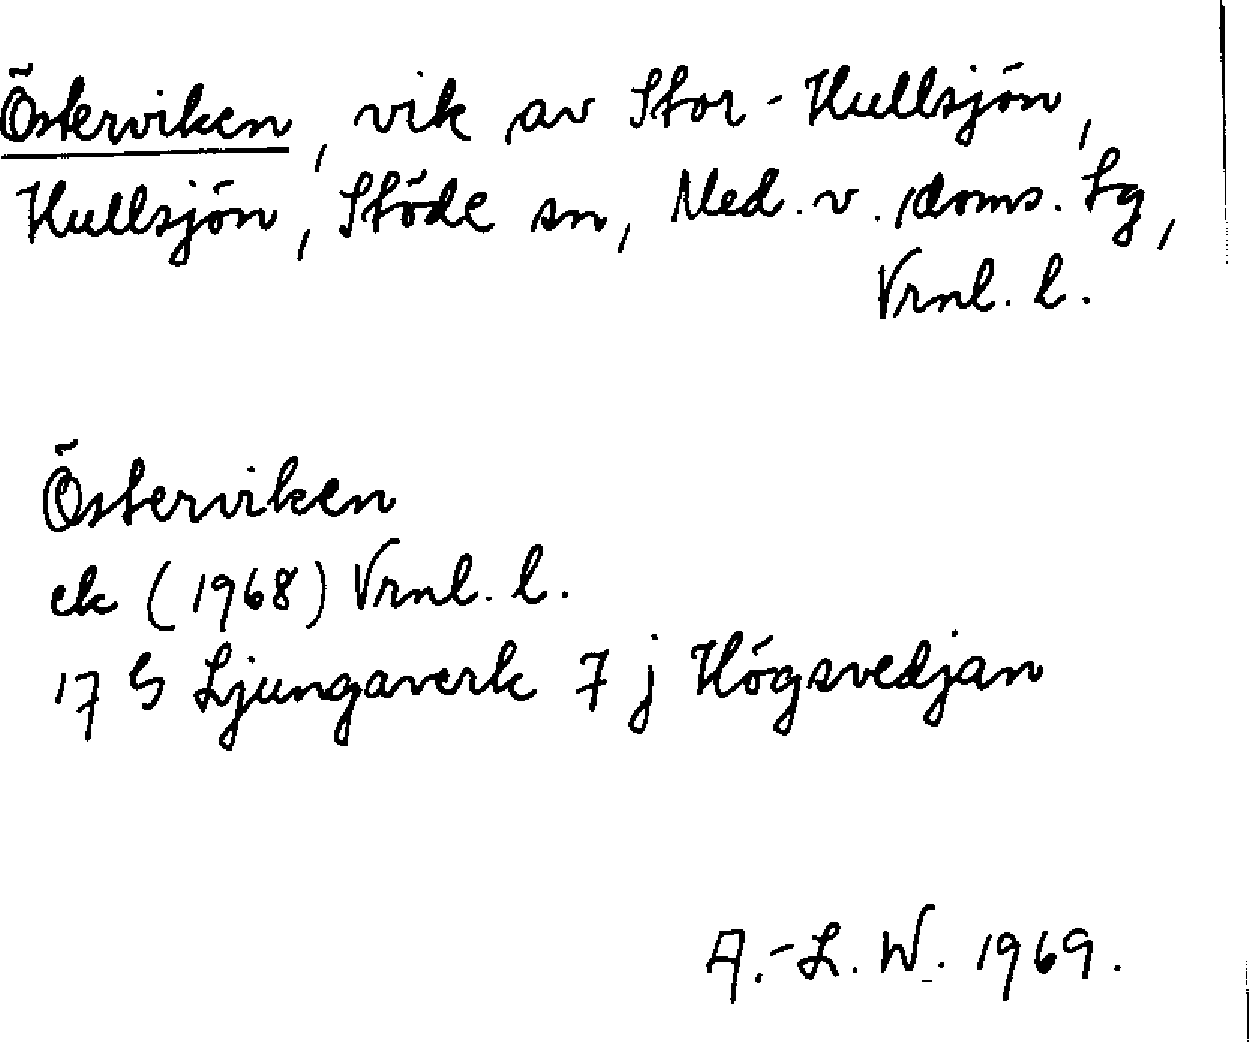 Österviken, vik av Stor-Hullsjön,
Hullsjön, Stöde sn, Med. v. doms. tg,
Vrnl. l.
Österviken
ek (1968) Vrnl. l.
17 G Ljungaverk 7 j Högsvedjan
A.-L. W. 1969.